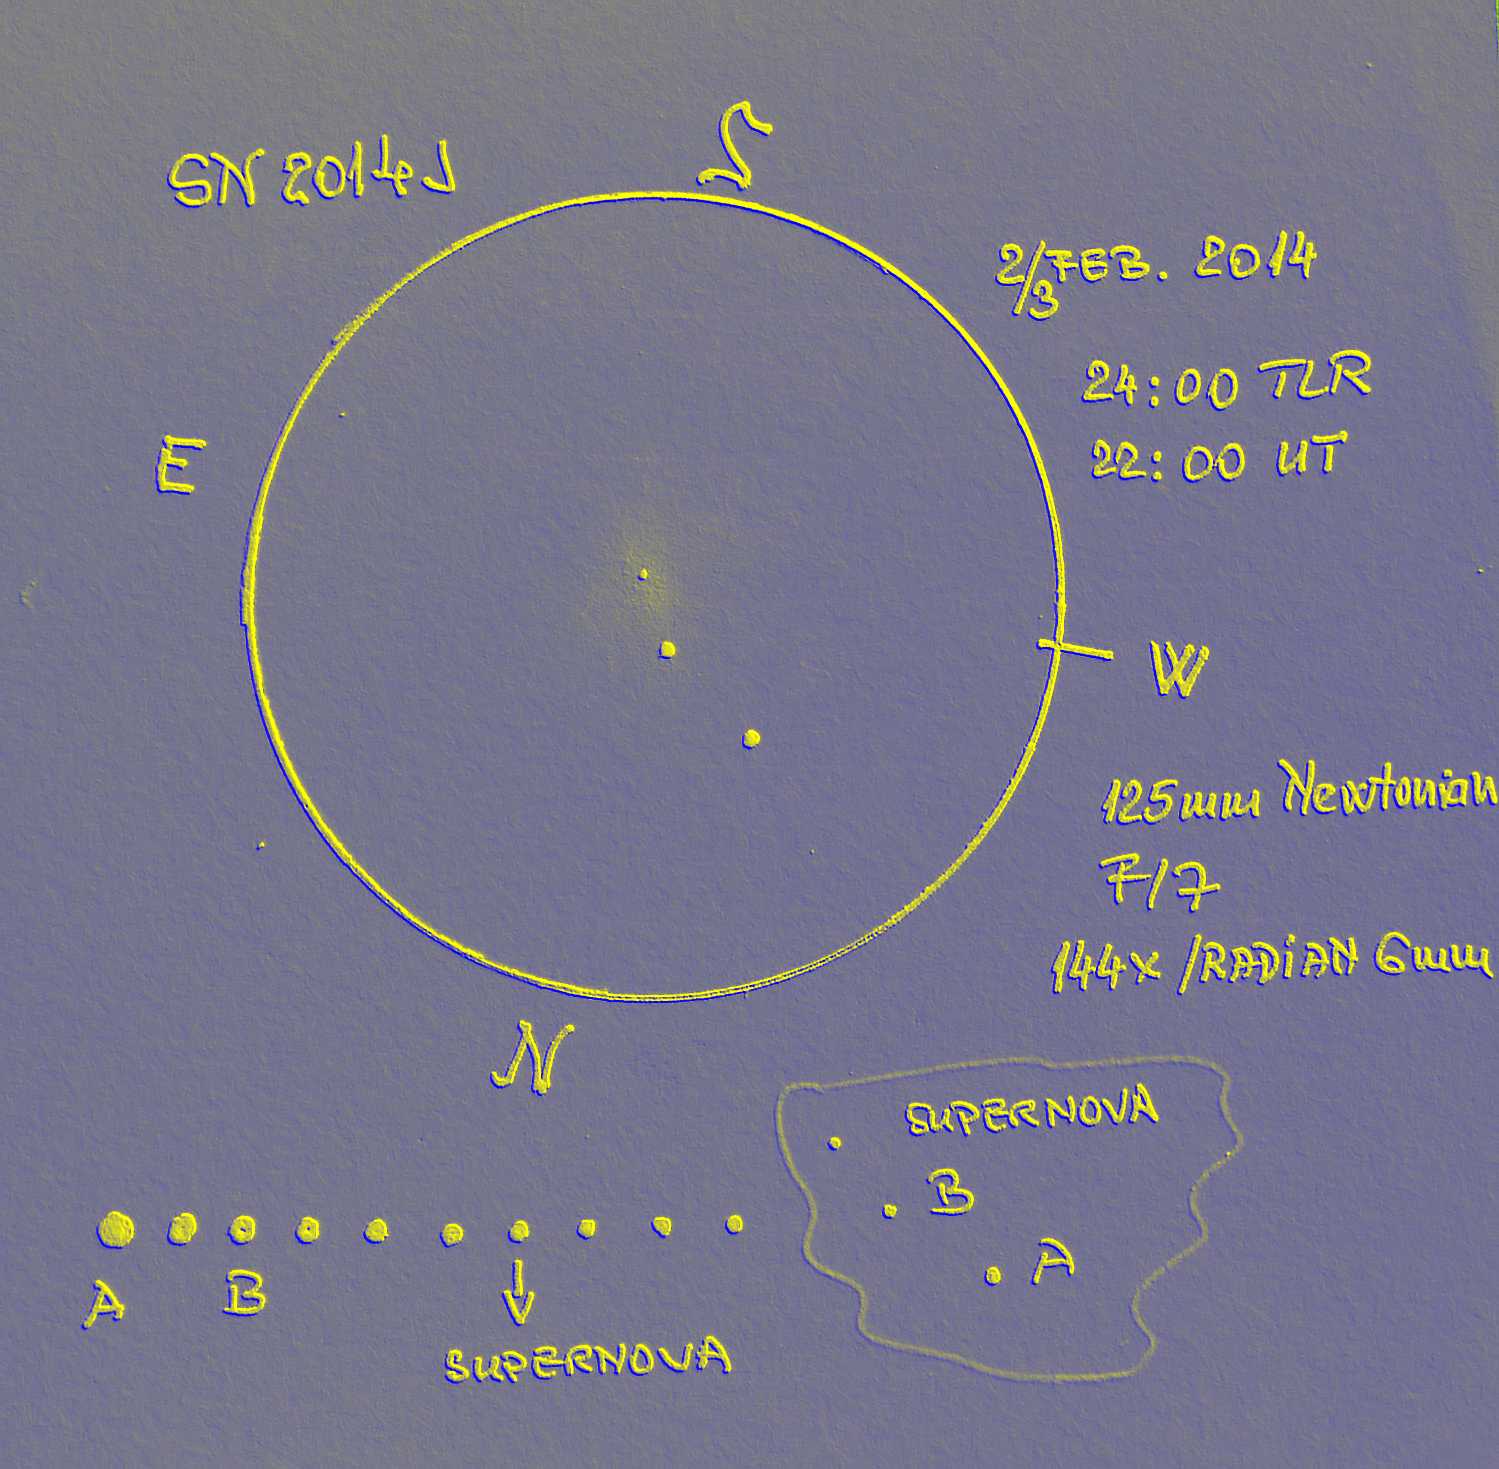 S
SN 2014J
2/3 FEB. 2014
24:00 TLR
22:00 UT
E
W
125mm Newtonian
F/7
144x /RADiAN 6mm
N
SUPERNOVA
B
A
A B
SUPERNOVA